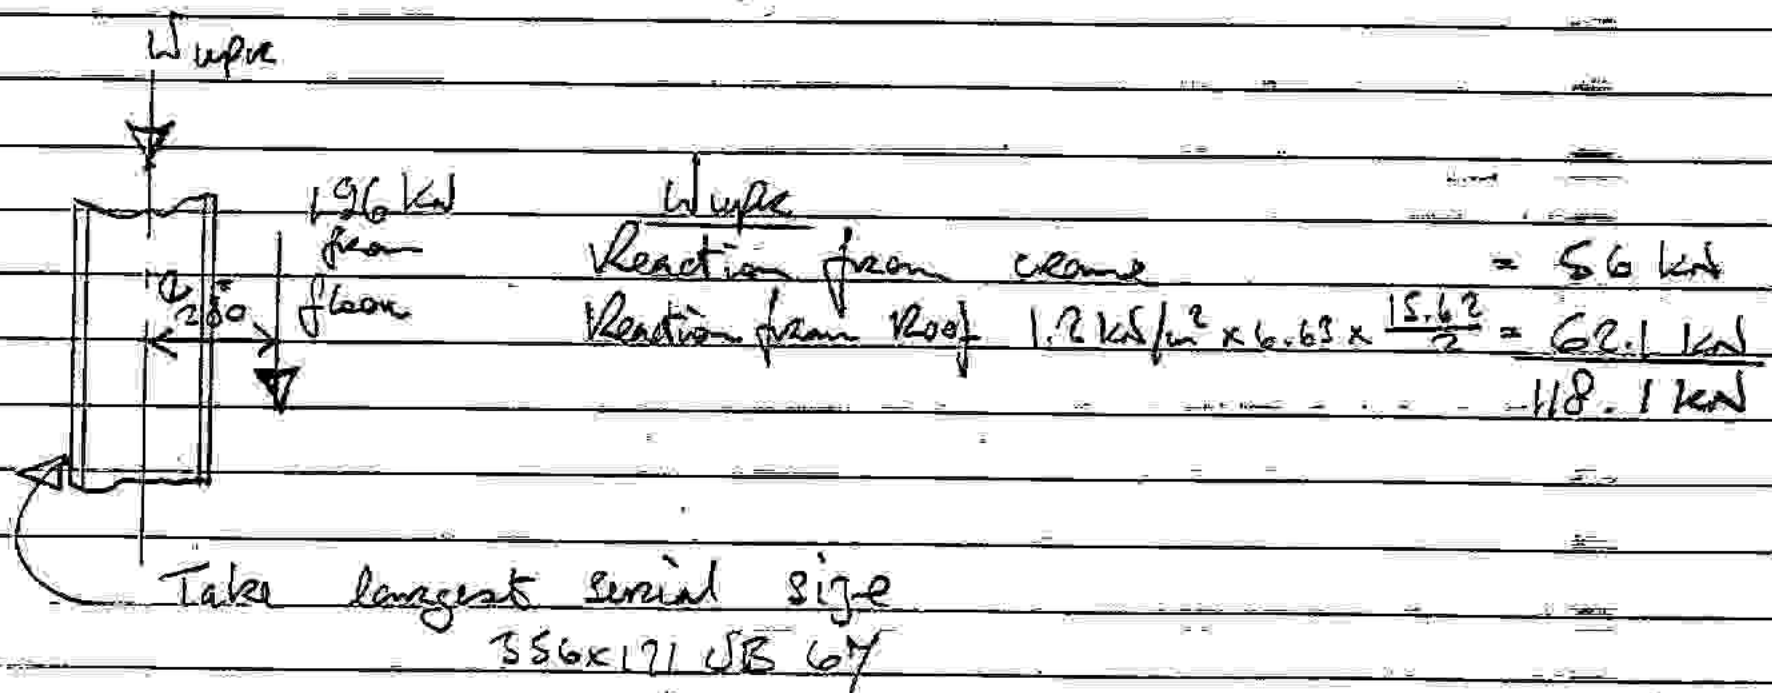 W upr
196 kN
from
floor
280
W upr
Reaction from crane = 56 kN
Reaction from Roof 1.2 kN/m² x 6.63 x 15.62/2 = 62.1 kN
118.1 kN
Take largest serial size
356x171 UB 67